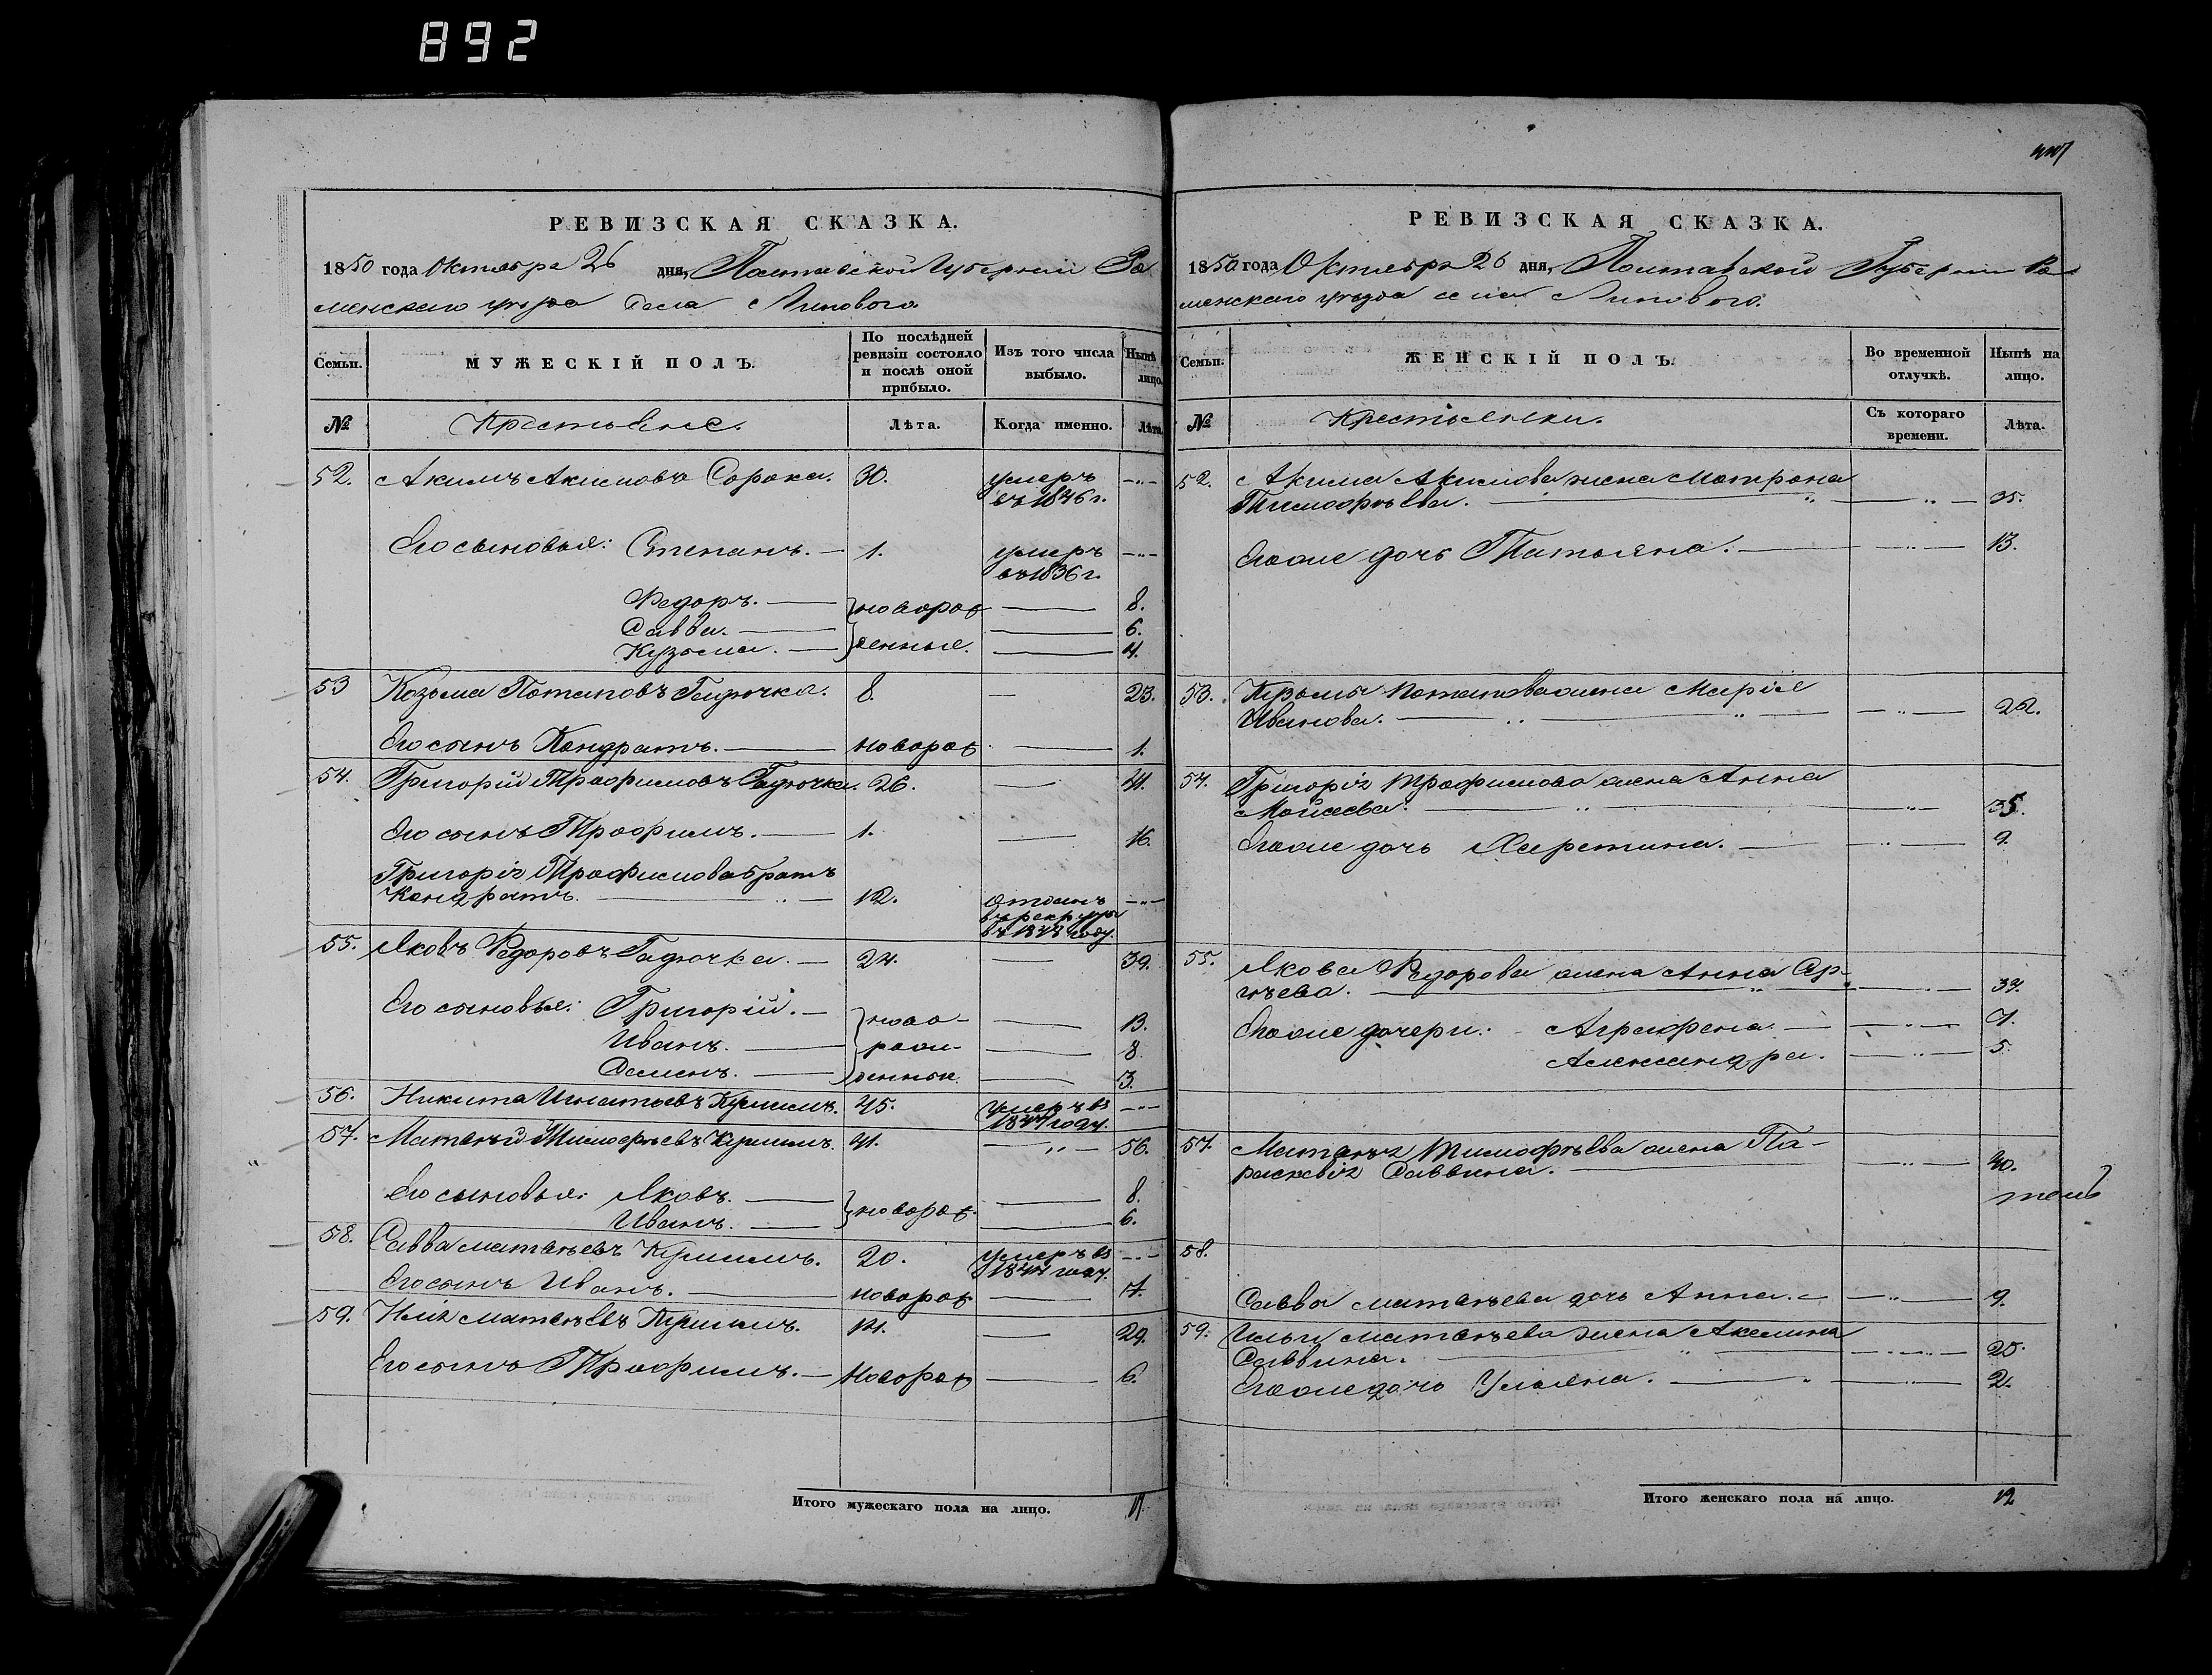 892
РЕВИЗСКАЯ СКАЗКА.
1850 года Октября 26 дня, Полтавской Губерніи Ро
менскаго уезда Села Липового
Семьи.
МУЖЕСКІЙ ПОЛЪ.
По послѣдней ревизіи состояло и послѣ оной прибыло.
Изъ того числа выбыло.
Нынѣ лицо.
№
Крестьяне.
Лѣта.
Когда именно.
Лѣта
52. Акимъ Акимовъ Сорока. 30. умеръ
въ 1846 г.
Его сыновья: Степанъ. 1. умеръ
въ 1836 г.
Федоръ. новорож 8.
Савва. 6.
Кузьма. денные. 4.
53 Козьма Потаповъ Гадючка. 8. 23.
Его сынъ Кондратъ. новорож 1.
54. Григорій Трофимовъ Гадючка. 26. 41.
Его сынъ Трофимъ. 1. 16.
Григорія Трофимова братъ
Кондратъ. 12. отданъ
въ рекруты
въ году.
55. Яковъ Федоровъ Гадючка. 24. 39.
Его сыновья: Григорій. ново- 13.
Иванъ. рож- 8.
Семенъ. денные. 3.
56. Никита Игнатьевъ 45. умеръ въ
году.
57. Матвѣй Тимофѣевъ 41. 56.
Его сыновья: Яковъ. новорож. 8.
Иванъ. 6.
58. Савва Матвѣевъ 20. умеръ въ
году.
Его сынъ Иванъ. новорож 7.
59. Илія Матвѣевъ 14. 29.
Его сынъ Трофимъ. новорож 6.
Итого мужескаго пола на лицо. 17.
РЕВИЗСКАЯ СКАЗКА.
1850 года Октября 26 дня, Полтавской Губерніи Ро
менскаго уѣзда села Липового.
Семьи.
ЖЕНСКІЙ ПОЛЪ.
Во временной отлучкѣ.
Нынѣ на лицо.
№
Крестьянки.
Съ котораго времени.
Лѣта.
52. Акима Акимова жена Матрона
Тимофѣева. 35.
Егоже дочь Татьяна. 13.
53. Кузьмы Потапова жена Марія
Иванова. 22.
54. Григорія Трофимова жена Анна
Мойсеева. 35.
Егоже дочь Харетина. 9.
55. Якова Федорова жена Анна Сер-
гѣева. 39.
Егоже дочери: Агрифена.
Александра. 5.
57. Матвѣя Тимофѣева жена Па-
раскевія Саввина. 40.
58.
Саввы Матвѣева дочь Анна. 9.
59. Ильи Матвѣева жена Акелина
Саввина. 25.
Егоже дочь Ульяна. 2.
Итого женскаго пола на лицо. 12